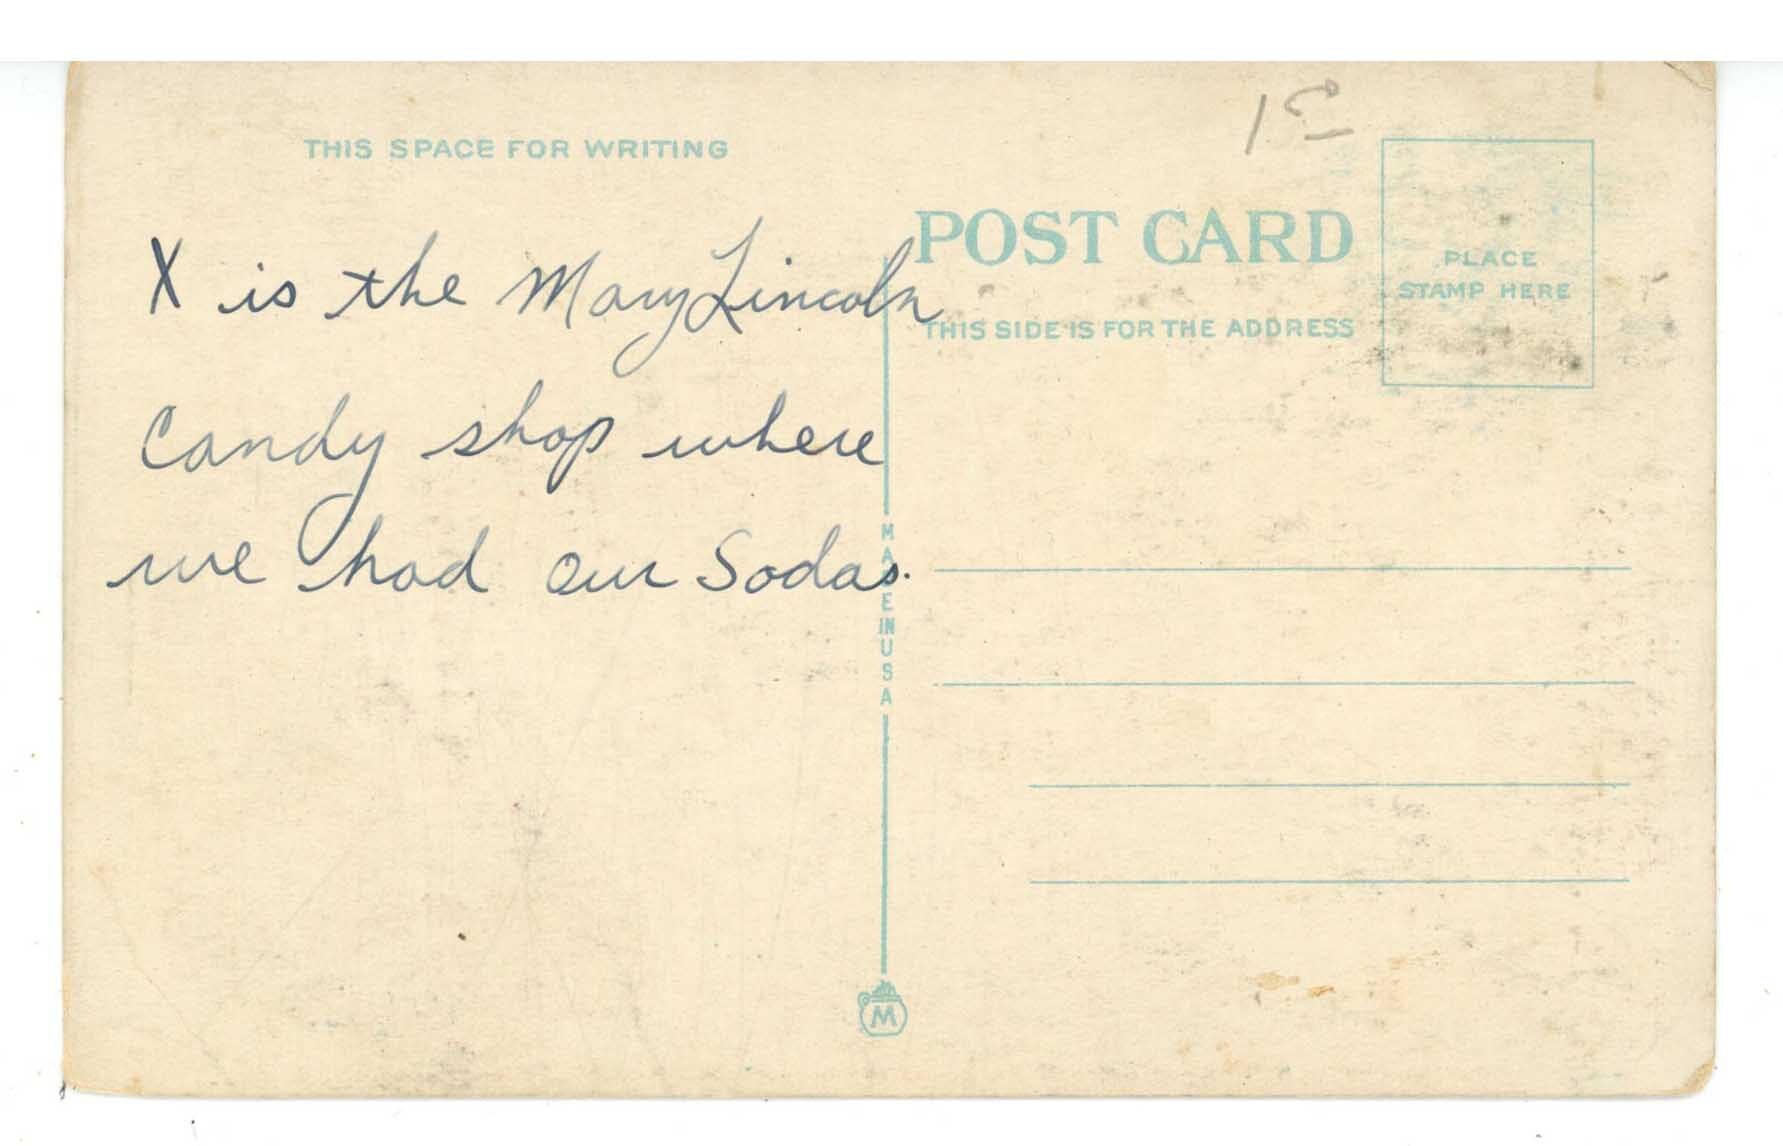 THIS SPACE FOR WRITING
X is the Mary Lincoln
Candy shop where
we had our Sodas.
POST CARD
THIS SIDE IS FOR THE ADDRESS
PLACE
STAMP HERE
MADE IN USA
M